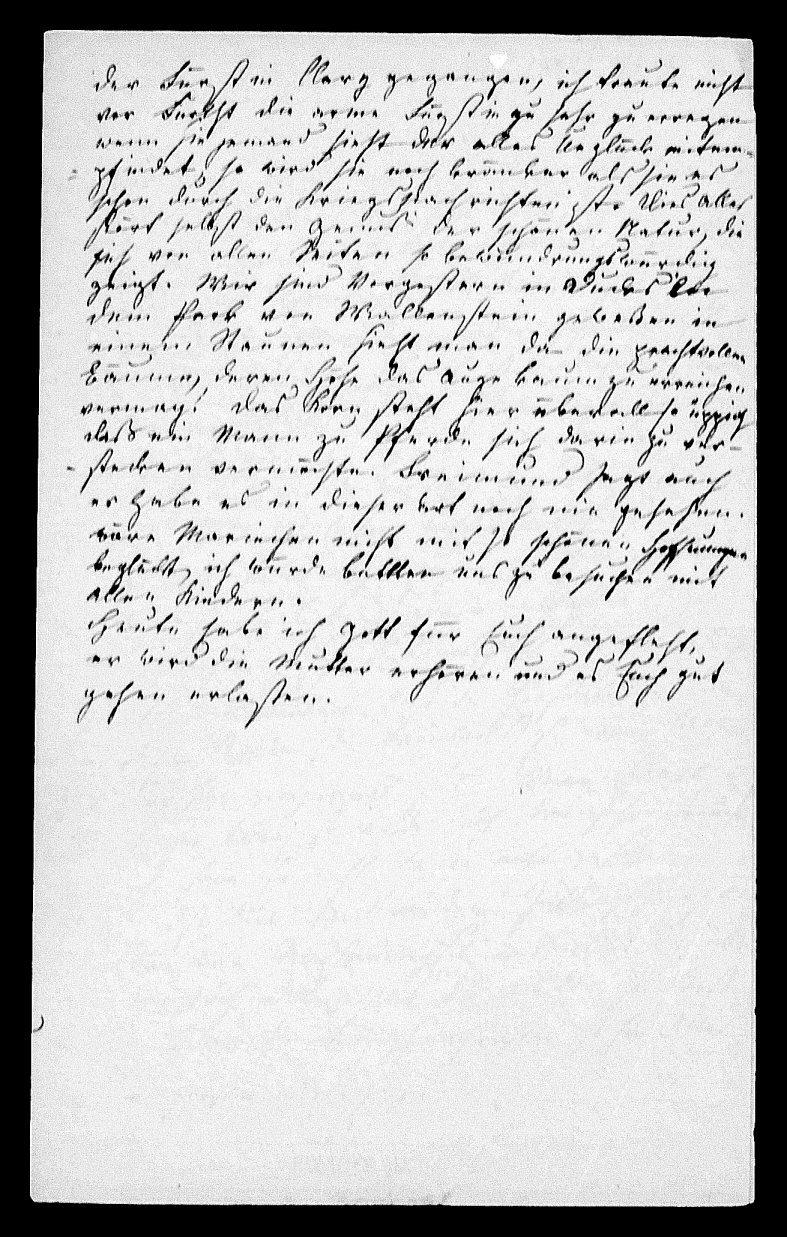 der Fürstin Clary gegangen, ich traute nicht
vor Furcht die arme Fürstin zu sehr zu erregen
wenn sie jemand sieht der alles Unglück mitem-
pfindet, so wird sie noch kränker als sie es
schon durch die Kriegsnachrichten ist. Dies Alles
stört selbst den Genuß der schönen Natur, die
sich von allen Seiten so bewundrungswürdig
zeigt. Wir sind Vorgestern in Ducks in
dem Park von Wallenstein geweßen in
einem Staunen sieht man da die prachtvollen
Bäume, deren Höhe das Auge kaum zu erreichen
vermag. Das Korn steht hier überall so üppig
daß ein Mann zu Pferde sich darin zu ver-
stecken vermöchte. Freimund sagt auch
er habe es in dieser Art noch nie gesehen.
wäre Mariechen nicht mit so schönen Hoffnungen
beglückt, ich würde bitten uns zu besuchen mit
allen Kindern.
Heute habe ich Gott für Euch angefleht,
er wird die Mutter erhören und es Euch gut
gehen erlaßen.